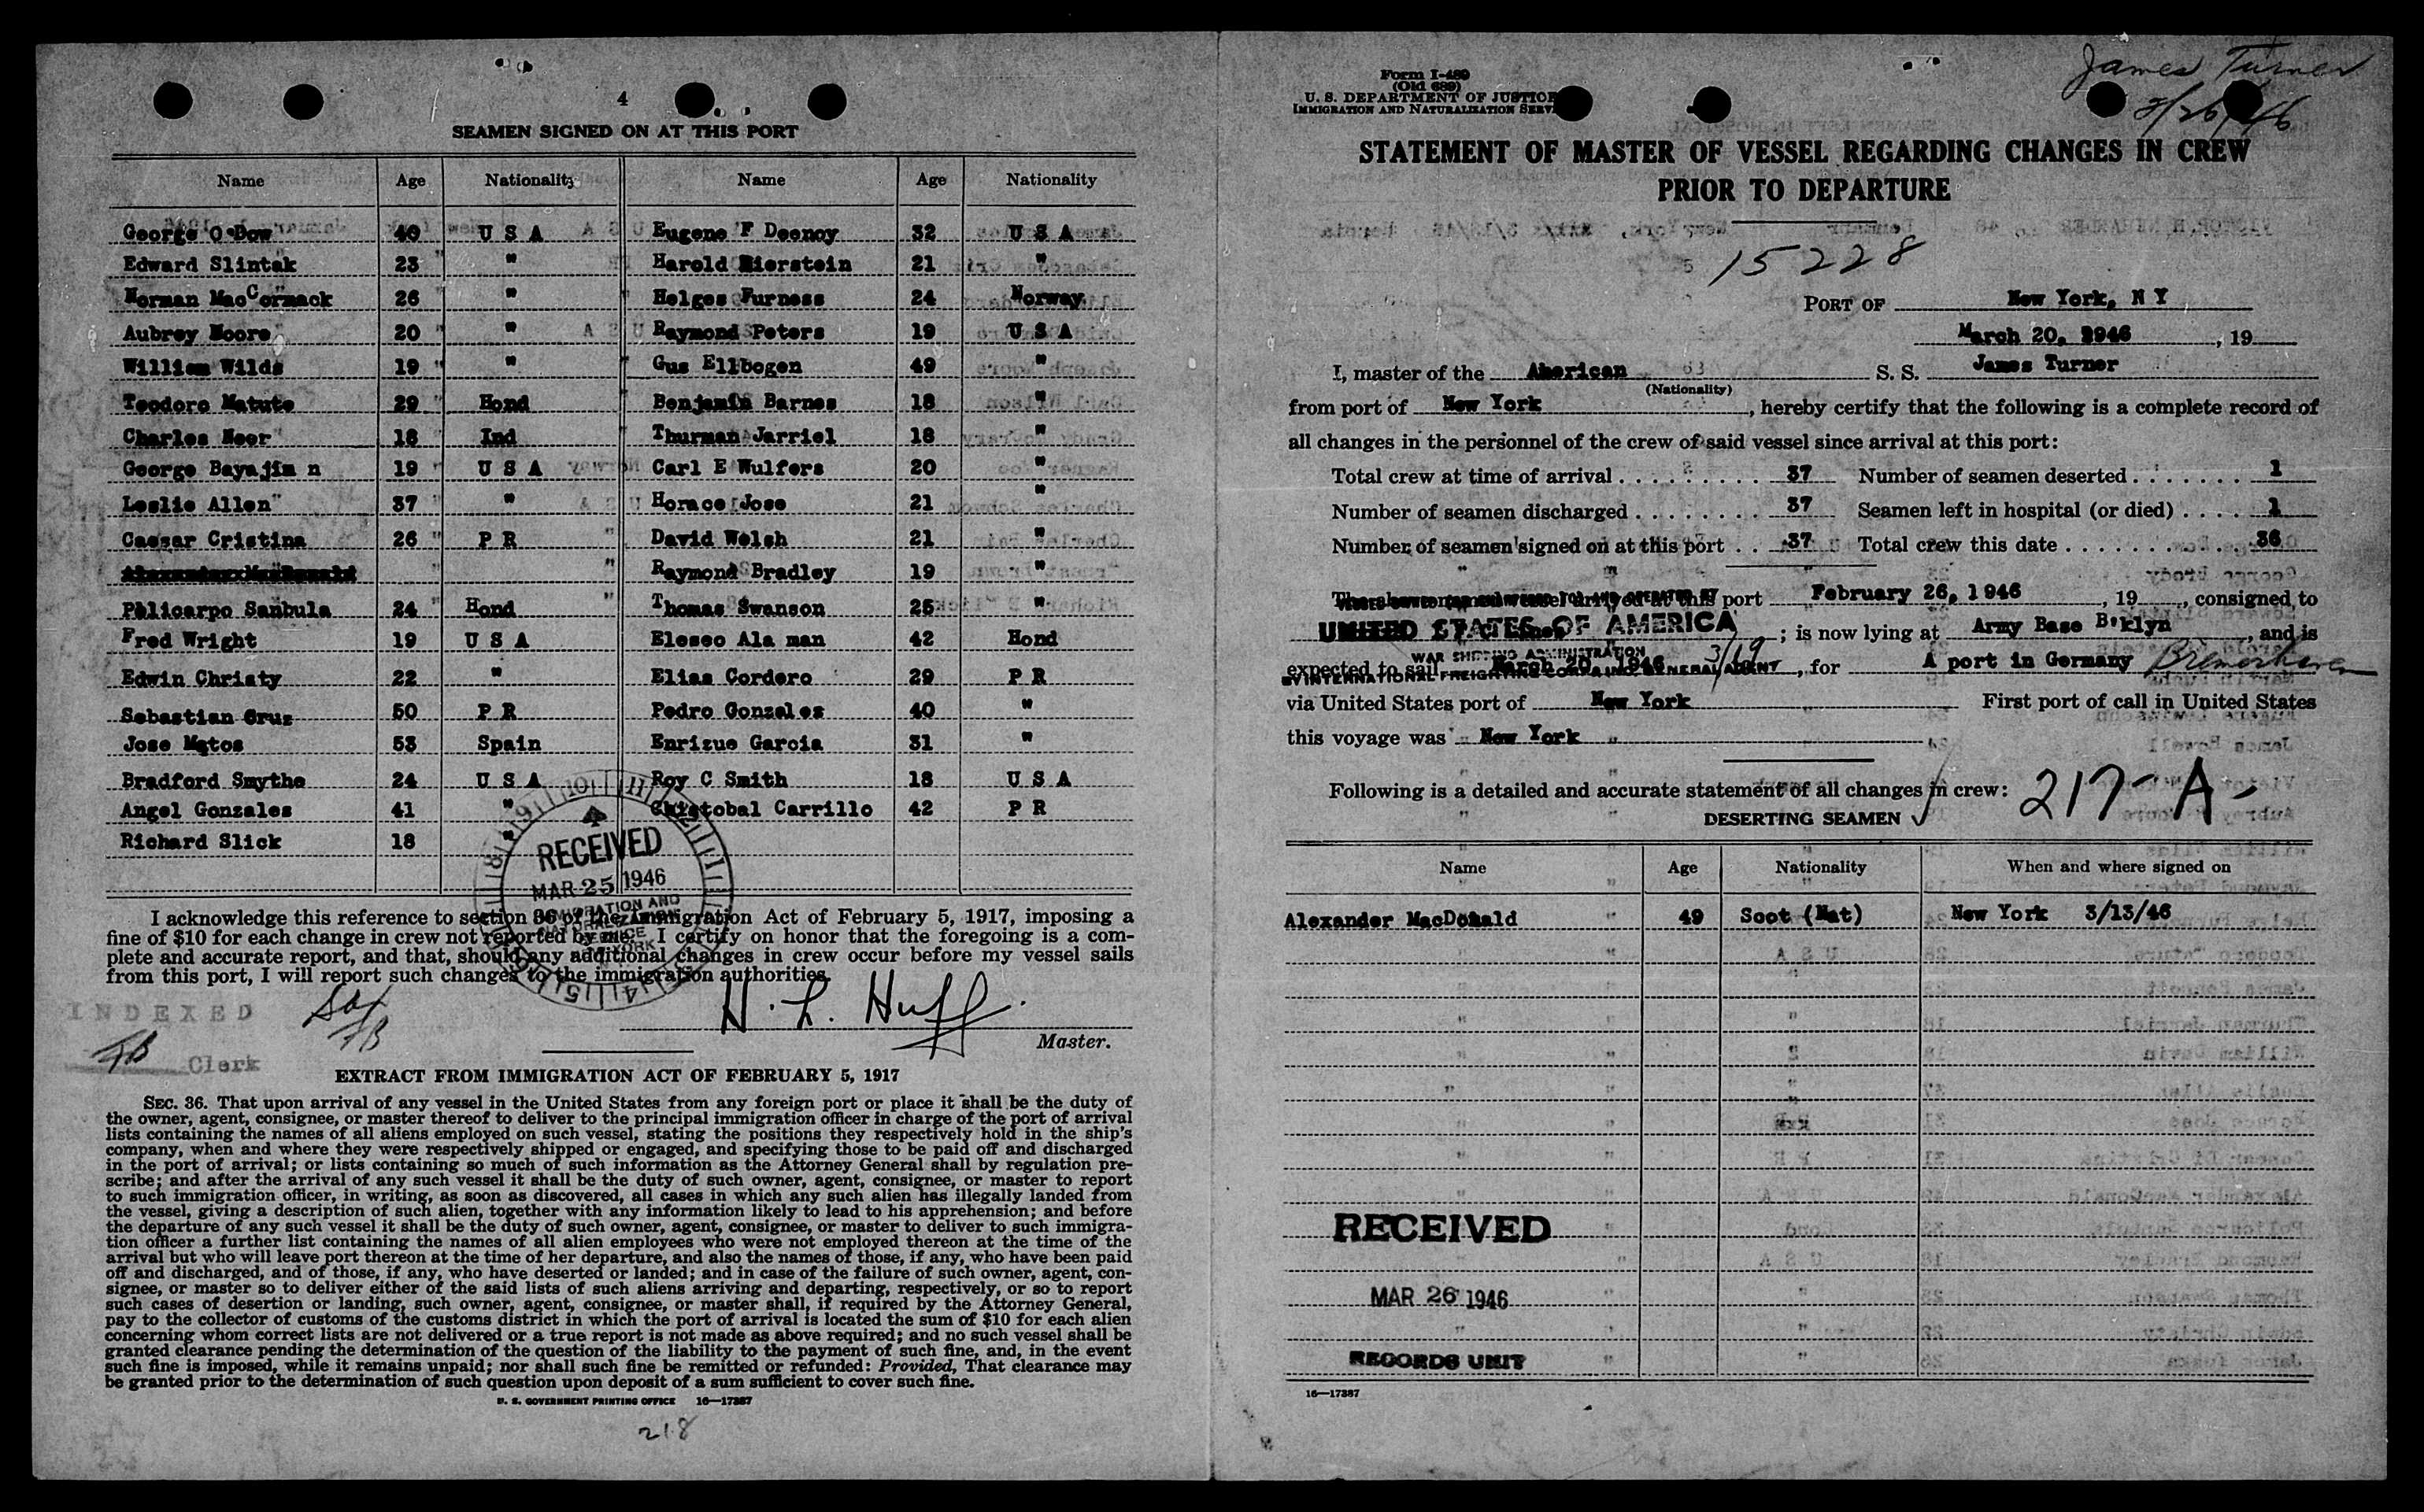 4
SEAMEN SIGNED ON AT THIS PORT
Name Age Nationality Name Age Nationality
George O Dow 40 U S A Eugene F Deenoy 32 U S A
Edward Slintak 23 " " Harold Bierstein 21 "
Norman MacCormack 26 " Helges Furness 24 Norway
Aubrey Moore 20 " " Raymond Peters 19 U S A
William Wilds 19 " " Gus Ellbogen 49 "
Teodoro Matute 29 " Hond Benjamin Barnes 18 "
Charles Neer 18 Ind Thurman Jarriel 18 "
George Bayajian n 19 " U S A Carl E Wulfers 20 "
Leslie Allen 37 " " Horace Jose 21 "
Caesar Cristina 26 " P R David Welsh 21 "
Raymond Bradley 19 "
Policarpo Sanbula 24 " Hond Thomas Swanson 25 "
Fred Wright 19 U S A Eleseo Ala man 42 Hond
Edwin Christy 22 " Elias Cordero 29 P R
Sebastian Cruz 50 P R Pedro Gonzales 40 "
Jose Matos 53 Spain Enrizue Garcia 31 "
Bradford Smythe 24 U S A Roy C Smith 18 U S A
Angel Gonzales 41 " Christobal Carrillo 42 P R
Richard Slick 18 "
RECEIVED
MAR 25 1946
I acknowledge this reference to section 36 of the Immigration Act of February 5, 1917, imposing a
fine of $10 for each change in crew not reported by me. I certify on honor that the foregoing is a com-
plete and accurate report, and that, should any additional changes in crew occur before my vessel sails
from this port, I will report such changes to the immigration authorities.
INDEXED
FB Clerk
H. L. Huff
Master.
EXTRACT FROM IMMIGRATION ACT OF FEBRUARY 5, 1917
SEC. 36. That upon arrival of any vessel in the United States from any foreign port or place it shall be the duty of
the owner, agent, consignee, or master thereof to deliver to the principal immigration officer in charge of the port of arrival
lists containing the names of all aliens employed on such vessel, stating the positions they respectively hold in the ship's
company, when and where they were respectively shipped or engaged, and specifying those to be paid off and discharged
in the port of arrival; or lists containing so much of such information as the Attorney General shall by regulation pre-
scribe; and after the arrival of any such vessel it shall be the duty of such owner, agent, consignee, or master to report
to such immigration officer, in writing, as soon as discovered, all cases in which any such alien has illegally landed from
the vessel, giving a description of such alien, together with any information likely to lead to his apprehension; and before
the departure of any such vessel it shall be the duty of such owner, agent, consignee, or master to deliver to such immigra-
tion officer a further list containing the names of all alien employees who were not employed thereon at the time of the
arrival but who will leave port thereon at the time of her departure, and also the names of those, if any, who have been paid
off and discharged, and of those, if any, who have deserted or landed; and in case of the failure of such owner, agent, con-
signee, or master so to deliver either of the said lists of such aliens arriving and departing, respectively, or so to report
such cases of desertion or landing, such owner, agent, consignee, or master shall, if required by the Attorney General,
pay to the collector of customs of the customs district in which the port of arrival is located the sum of $10 for each alien
concerning whom correct lists are not delivered or a true report is not made as above required; and no such vessel shall be
granted clearance pending the determination of the question of the liability to the payment of such fine, and, in the event
such fine is imposed, while it remains unpaid; nor shall such fine be remitted or refunded: Provided, That clearance may
be granted prior to the determination of such question upon deposit of a sum sufficient to cover such fine.
U. S. GOVERNMENT PRINTING OFFICE 16—17387
218
Form I-489
(Old 689)
U. S. DEPARTMENT OF JUSTICE
IMMIGRATION AND NATURALIZATION SERV
James Turner
3/26/46
STATEMENT OF MASTER OF VESSEL REGARDING CHANGES IN CREW
PRIOR TO DEPARTURE
15228
PORT OF New York, N Y
March 20, 1946, 19
I, master of the American S. S. James Turner
(Nationality)
from port of New York, hereby certify that the following is a complete record of
all changes in the personnel of the crew of said vessel since arrival at this port:
Total crew at time of arrival 37 Number of seamen deserted 1
Number of seamen discharged 37 Seamen left in hospital (or died) 1
Number of seamen signed on at this port 37 Total crew this date 36
port February 26, 1946, 19, consigned to
UNITED STATES OF AMERICA; is now lying at Army Base B'klyn, and is
WAR SHIPPING ADMINISTRATION
expected to sail March 20, 1946 3/19, for A port in Germany Bremerhaven
BY INTERNATIONAL FREIGHTING CORP. INC. GENERAL AGENT
via United States port of New York First port of call in United States
this voyage was New York
Following is a detailed and accurate statement of all changes in crew: 217-A-
DESERTING SEAMEN
Name Age Nationality When and where signed on
Alexander MacDonald 49 Scot (Nat) New York 3/13/46
RECEIVED
MAR 26 1946
RECORDS UNIT
16—17387